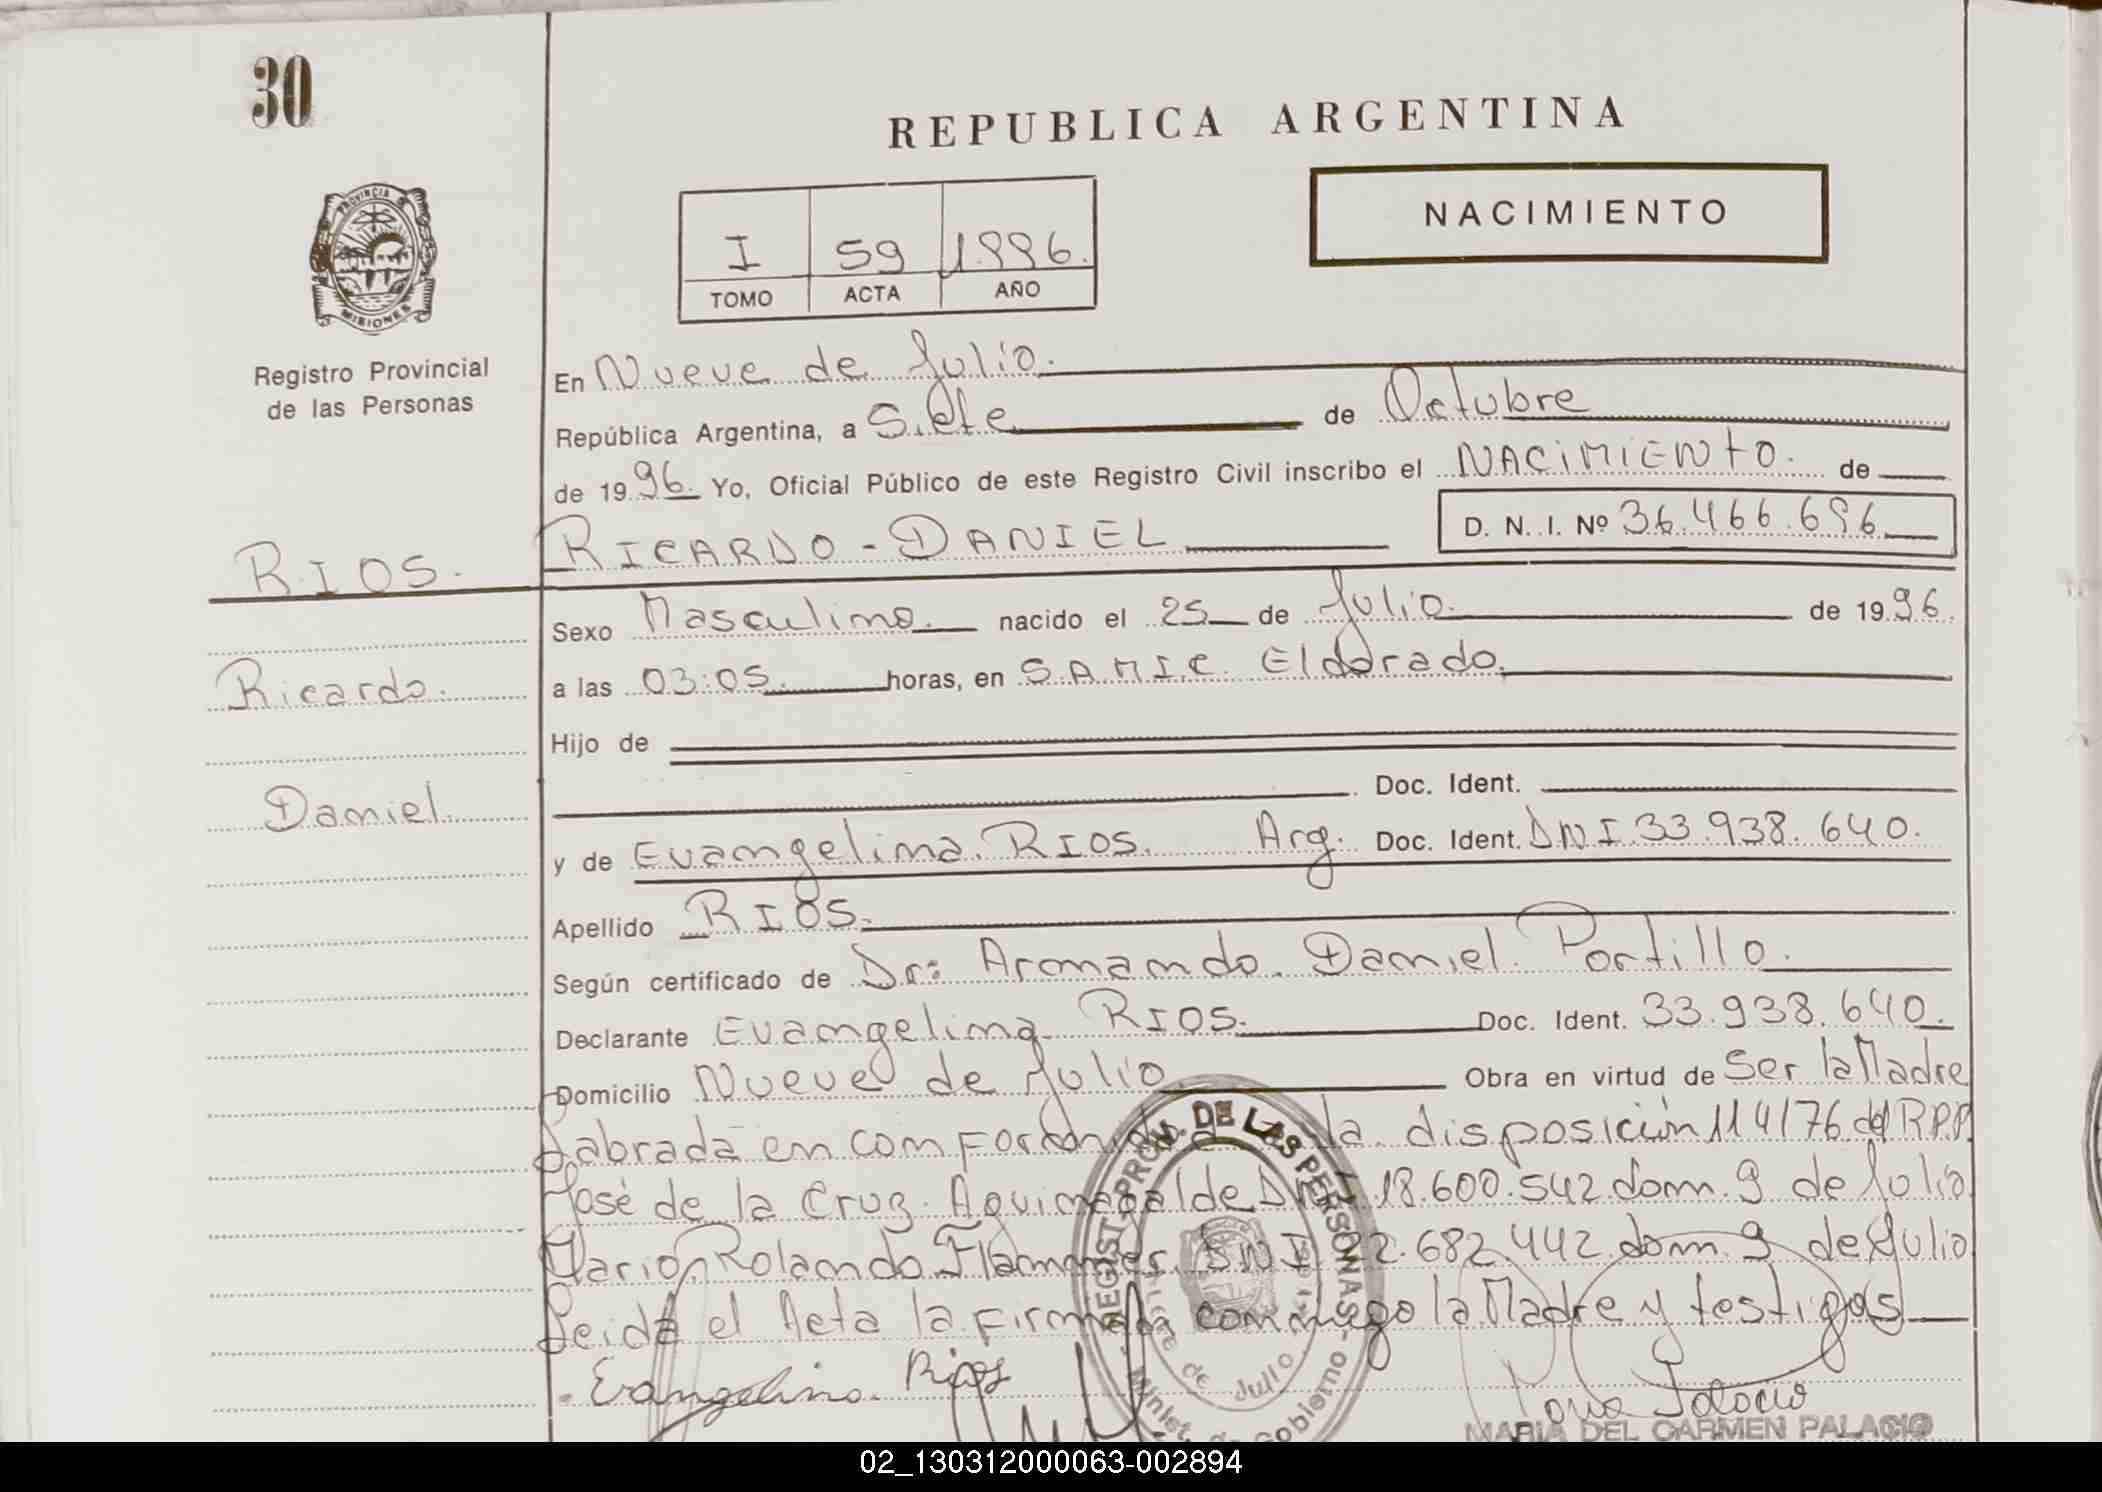 30
REPUBLICA ARGENTINA
NACIMIENTO
I 59 1996.
TOMO ACTA AÑO
PROVINCIA DE
MISIONES
Registro Provincial
de las Personas
En Nueve de Julio.
República Argentina, a Siete de Octubre
de 1996. Yo, Oficial Público de este Registro Civil inscribo el NACIMIENTO. de
RIOS. RICARDO - DANIEL D. N. I. Nº 36.466.696
Sexo Masculino. nacido el 25 de Julio. de 1996.
Ricardo. a las 03:05. horas, en S.A.M.I.C. Eldorado.
Hijo de
Daniel. Doc. Ident.
y de Evangelina. RIOS. Arg. Doc. Ident. DNI.33.938.640.
Apellido RIOS.
Según certificado de Dr: Armando. Daniel. Portillo.
Declarante Evangelina RIOS. Doc. Ident. 33.938.640.
Domicilio Nueve de Julio Obra en virtud de Ser la Madre
Labrada en conformidad a la disposición 114/76 del R.P.P
José de la Cruz. DNI 18.600.542 dom. 9 de Julio
Mario Rolando DNI 2.682.442 dom. 9 de Julio
Leida el Acta la firman conmigo la Madre y testigos
Evangelina. Rios
REGIST. PROV. DE LAS PERSONAS - Minist. de Gobierno -
de Julio
MARIA DEL CARMEN PALACIO
02_130312000063-002894